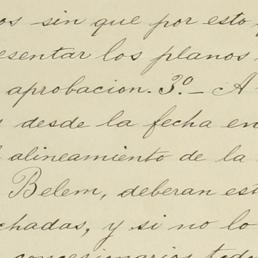 os sin que por esto
esentar los planos
aprobacion. 3º.- A
desde la fecha en
alineamiento de la
Belem, deberan est
chadas, y si no lo
concesionarios tod